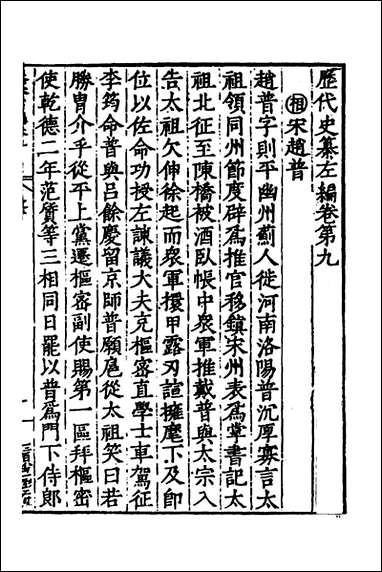 歷代史纂左編卷第九
相宋趙普
趙普字則平幽州薊人徙河南洛陽普沉厚寡言太
祖領同州節度辟爲推官移鎮宋州表爲掌書記太
祖北征至陳橋被酒臥帳中衆軍推戴普與太宗入
告太祖欠伸徐起而衆軍擐甲露刃諠擁麾下及即
位以佐命功授左諫議大夫充樞密直學士車駕征
李筠命普與呂餘慶留京師普願扈從太祖笑曰若
勝胄介乎從平上黨遷樞密副使賜第一區拜樞密
使乾德二年范質等三相同日罷以普爲門下侍郎